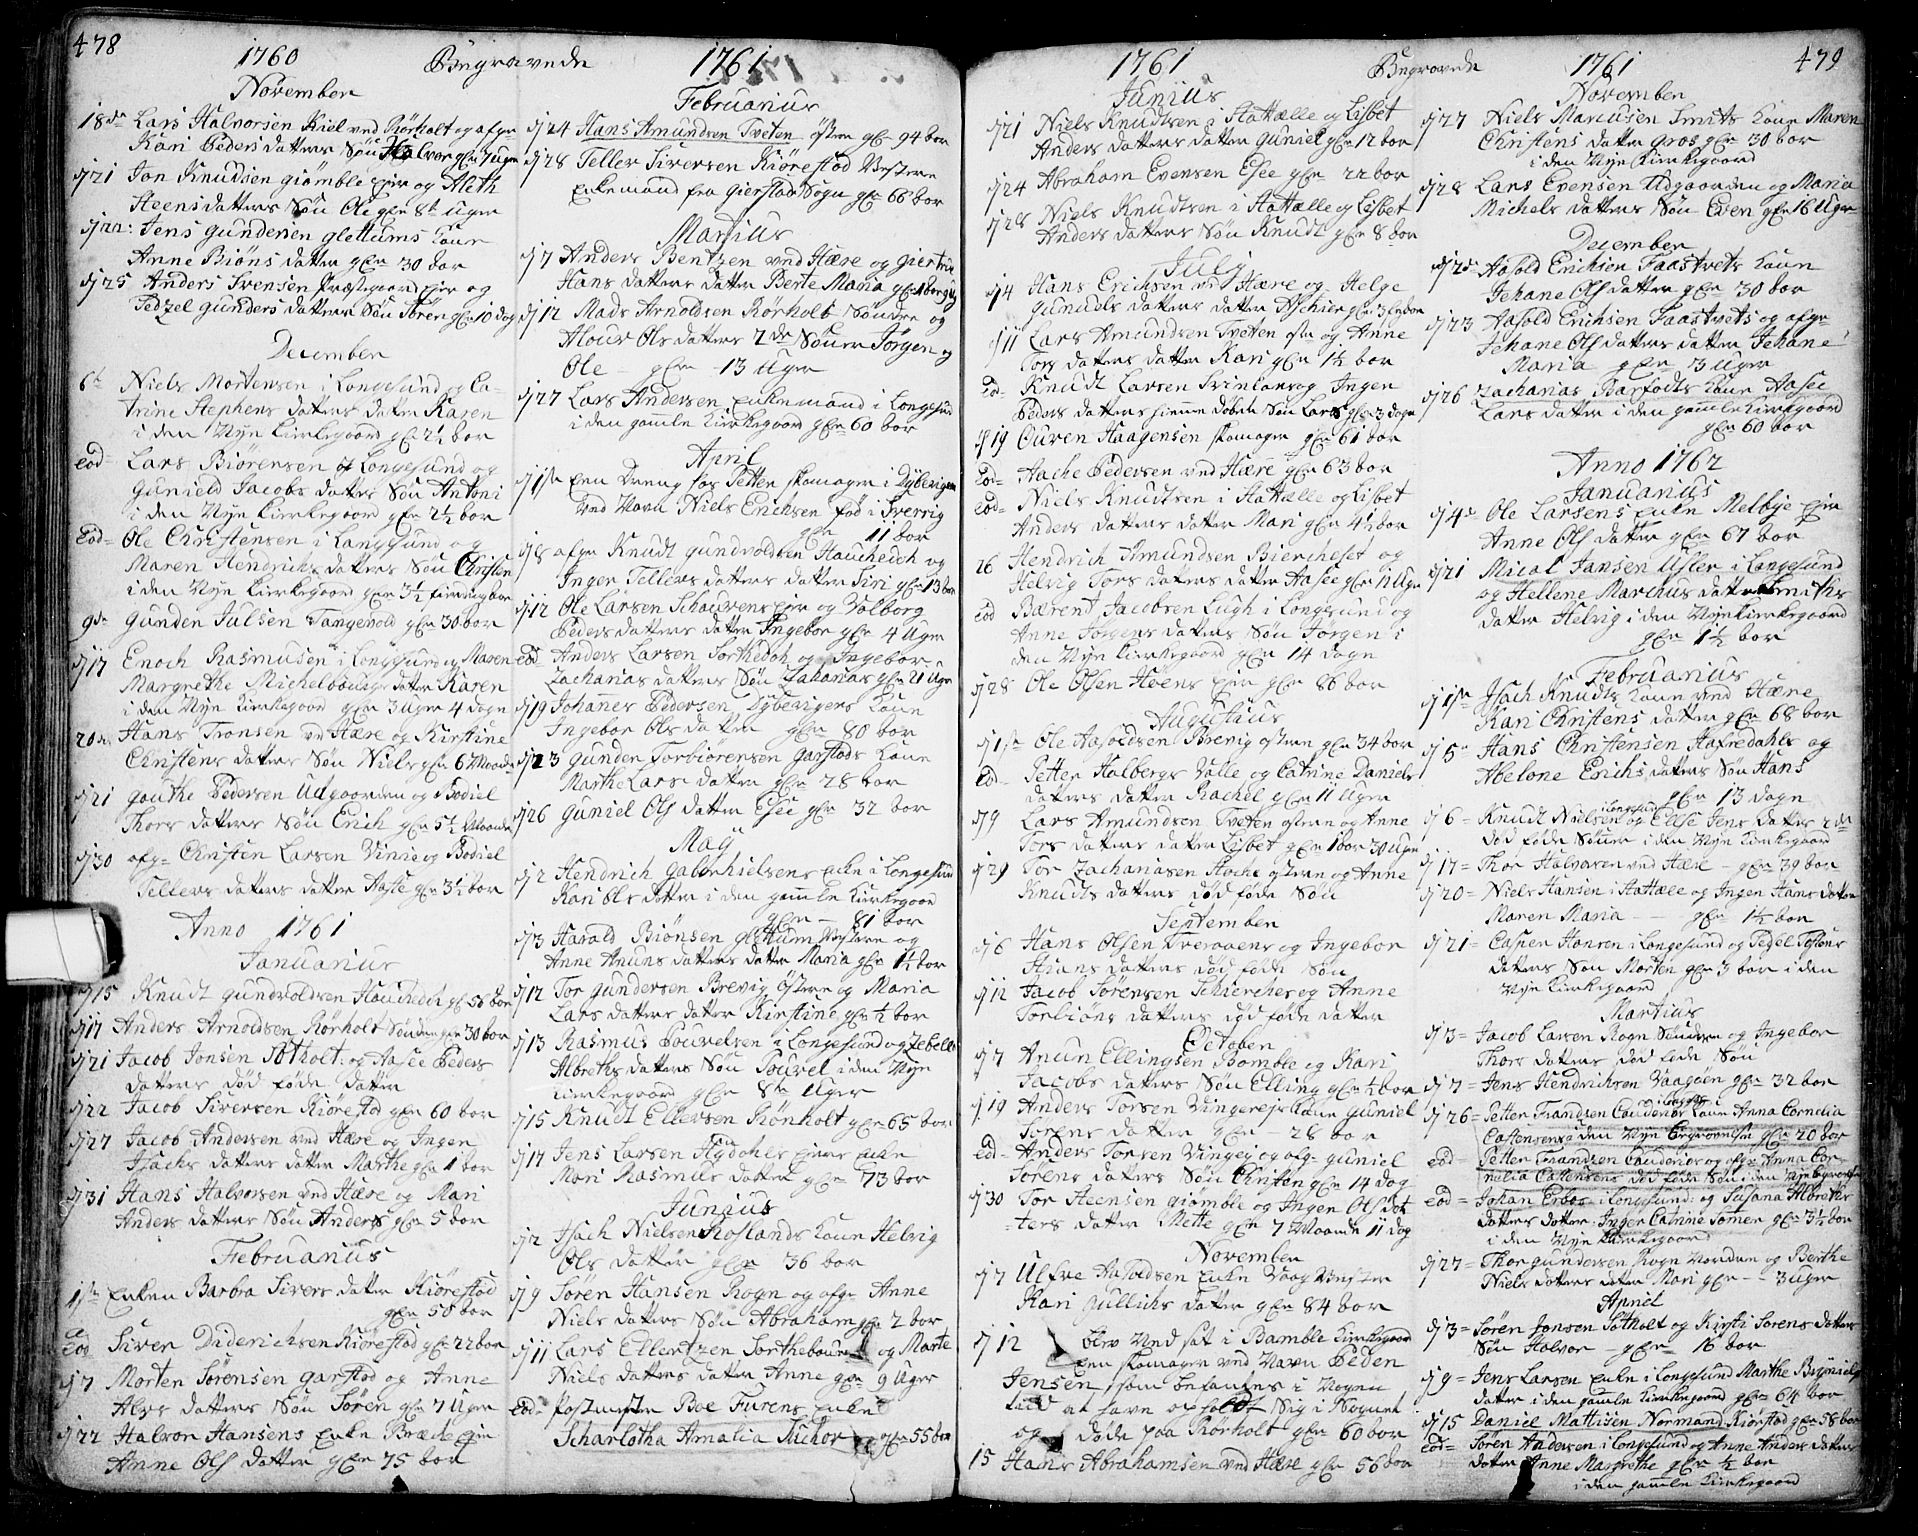 478
1760
Begravede
1761
November
18de Lars Halvorsen Kiel ved Rörholt og afgn
Kari Peders datters Sön Halvor gl 7 Uger
dj 21 Jon Knudsen giömble Ejer og Aleth
Steens datters Sön Ole gl 8t Uger
dj 22 Jens gundersen glettums Kone
Anne Biöns datter gl 30 bar
dj 25 Anders Svensen Præstegaard Ejer og
Tedzel gunders datters Sön Sören gl 10 dag
December
6t Niels Mortensen i Longesund og Ca-
trine Stephens datters datter Karen
i den Nye Kierkegaard gl 2½ bar
eod Lars Biörensen i Longesund og
gunield Jacobs datters Sön Antoni
i den Nye Kierkegaard gl 2½ bar
eod Ole Christensen i Langesund og
Maren Hendrichs datters Sön Christen
i den Nye Kierkegaard gl 3½
9de gunder Julsen Tangevold gl 30 bar
dj 17 Enoch Rasmusen i Longesund og Maren
Margrethe datter Karen
i den Nye Kierkegaard gl 3 Uger 4 dage
20de Hans Tronsen ved Hære og Kirstine
Christens datters Sön Niels gl 6 Maande
dj 21 gouthe Pedersen Udgaarden og Bodiel
Thors datters Sön Erich gl 5½ Maande
dj 30 afgn Christen Larsen Vinie og Bodiel
Tellevs datters datter Aaste gl 3½ bar
Anno 1761
Januarius
dj 15 Knudt gundvoldsen Hauchedch gl 58 bar
dj 17 Anders Arnoldsen Rörholt Sönder gl 30 bar
dj 21 Jacob Jonsen Stoholt og Aasee Peders
datters död föde datter
dj 22 Jacob Siversen Kiörestod gl 60 bar
dj 27 Jacob Andersen ved Hære og Inger
Isachs datters datter Marthe gl 1 bar
dj 31 Hans Halvorsen ved Hære og Mari
Anders datters Sön Anders gl 5 bar
Februarius
1ste Enken Barbra Sivers datter Kiörestod
gl 58 bar
eod Siver Diderichsen Kiörestad gl 22 bar
dj 7 Morten Sörensen garstod og Anne
Alvs datters Sön Sören gl 7 Uger
dj 22 Halvor Hansens Enke Bræche Ejer
Anne Ols datter gl 75 bar
Februarius
dj 24 Hans Amundsen Tveten östre gl 94 bar
dj 28 Tellev Siversen Kiörestod Vestere
Enkemand fra gierstad Sogn gl 66 bar
Martius
dj 7 Anders Bentzen ved Hære og giertru
Hans datters datter Berte Maria gl
dj 12 Mads Arnoldsen Rörholt Söndre og
Alour Ols datters 2de Sönner Jörgen og
Ole gl 13 Uger
dj 27 Lars Andersen Enkemand i Longesund
i den gamle Kierkegaard gl 60 bar
April
dj 1ste Een Dreng hos Petter skomager i Dybevigen
ved Navn Niels Erichsen föd i Sverrig
gl 11 bar
dj 8 afgn Knudt gundvoldsen Hauchedch og
Inger Tellevs datters datter Siri gl 13 bar
dj 12 Ole Larsen Schauvens Ejer og Valborg
Peders datters datter Ingebor gl 4 Uger
eod Anders Larsen Sorthedch og Ingebor
Zacharias datters Sön Zakarias gl 21 Uger
dj 19 Johannes Pedersen Dybevigens Kone
Ingebor Ols datter gl 80 bar
dj 23 gunder Torbiörensen garstads Kone
Marthe Lars datter gl 28 bar
dj 26 guniel Ols datter Esee gl 32 bar
Maij
dj 2 Hendrich gabrihielsens Enke i Longesund
Kari Ols datter i den gamle Kierkegaard
gl 81 bar
dj 3 Harald Biönsen glettum Vestre og
Anne Anuns datters datter Maria gl 1½ bar
dj 12 Tor gundersen Brevig östre og Maria
Lars datters datter Kirstine gl ½ bar
dj 13 Rasmus Pouvelsen i Longesund og Zebelle
Albreths datters Sön Pouvel i den Nye
Kierkegaard gl 8te Uger
dj 15 Knudt Ellevsen Rörholt gl 65 bar
dj 17 Jens Larsen Enke
Mari Rasmus datter gl 73 bar
Junius
dj 2 Isach Nielsen Roslands Kone Helvig
Ols datter gl 36 bar
dj 9 Sören Hansen Rogn og afgn Anne
Niels datters Sön Abraham gl 2 bar
dj 11 Lars Ellertzen og Marte
Niels datters datter Anne gl 9 Uger
eod Postmester Boe Furens Enke
Scharlotha Amalia gl 55 bar
1761
Begravede
1761
479
Junius
dj 21 Niels Knudtsen i Stattælle og Lisbet
Anders datters datter Guniel gl 12 bar
dj 24 Abraham Evensen Esee gl 22 bar
dj 28 Niels Knudtsen i Stattælle og Lisbet
Anders datters Sön Knudt gl 8 bar
Julij
dj 4 Hans Erichsen ved Hære og Helge
gunuels datters datter gl
dj 11 Lars Amundsen Tveten östre og Anne
Tors datters datter Kari gl 1½ bar
eod Knudt Larsen og Inger
Peders datters hiemme döbte Sön Lars gl 3 dage
dj 19 Ouven Haagensen skomager gl 61 bar
eod Aache Pedersen ved Hære gl 63 bar
eod Niels Knudtsen i Stattælle og Lisbet
Anders datters datter Mari gl 4½ bar
26 Hendrich Amundsen Biercheset og
Helvig Tors datters datter Aasee gl 11 Uger
eod Bærent Jacobsen Lugh i Longesund og
Anne Jörgens datters Sön Jörgen i
den Nye Kierkegaard gl 14 dage
dj 28 Ole Olsen Hvens Ejer gl 86 bar
Augustus
dj 1ste Ole Aasoldsen Brevig östre gl 34 bar
eod Petter Halbergs Valle og Catrine Daniels
datters datter Rachel gl 11 Uger
dj 9 Lars Amundsen Tveten östre og Anne
Tors datters datter Lisbet gl 1 bar 30 Uger
dj 29 Tor Zachariasen Stoche östre og Anne
Knudts datters död föde Sön
September
dj 6 Hans Olsen og Ingebor
datters död föde Sön
dj 12 Jacob Sörensen Schierches og Anne
Torbiöns datters död föde datter
October
dj 7 Anun Ellingsen Bomble og Kari
Jacobs datters Sön Elling gl ½ bar
dj 19 Anders Torsen Vingerejs Kone guniel
Sörens datter gl 28 bar
eod Anders Torsen Vingej og afgn guniel
Sörens datters Sön Christen gl 14 dag
dj 30 Tor Steensen giömble og Inger Ols dot
ters datter Mette gl 7 Maande 11 dag
November
dj 7 Ulfve Aasoldsen Enke Vaag Vestre
Kari Gullichs datter gl 84 bar
dj 12 blev Ved sat i Bamble Kierkegaard
Een skomager ved Navn Peder
Jensen som befantes i Vognen
död paa Rörholt gl 60 bar
15 Hans Abrahamsen ved Hære gl 56 bar
November
dj 27 Niels Marcusen Smits Kone Maren
Christens datter gros gl 30 bar
i den Nye Kierkegaard
dj 28 Lars Evensen Udgaarden og Maria
Michels datters Sön Even gl 16 Uger
December
dj 2de Aasold Erichsen Faastvets Kone
Jehane Ols datter gl 30 bar
dj 23 Aasold Erichsen Faastvets og afgn
Jehane Ols datters datter Jehane
Maria gl 3 Uger
dj 26 Zacharias Barfodts Kone Aasee
Lars datter i den gamle Kierkegaard
gl 60 bar
Anno 1762
Januarius
dj 4de Ole Larsens Enke Melbye Ejer
Anne Ols datter gl 67 bar
dj 21 Micol Jansen Uster i Longesund
og Hellene Marchus datter Smiths
datter Helvig i den Nye Kierkegaard
gl 1½ bar
Februarius
dj 1ste Isach Knudts Kone ved Hære
Kari Christens datter gl 68 bar
dj 5 Hans Christensen Hafredahls og
Abelone Erichs datters Sön Hans
gl 13 dage
dj 6 Knudt Nielsen i Longesund og Ellse Jens datters 2de
död föde Sönner i den Nye Kierkegaard
dj 17 Thor Halvorsen ved Hære gl 39 bar
dj 20 Niels Hansen i Stattælle og Inger Hans datter
Maren Maria gl 1½ bar
dj 21 Casper Hansen i Longesund og Pedel
datters Sön Morten gl 3 bar i den
Nye Kierkegaard
Martius
dj 3 Jacob Larsen Rogn Söndre og Ingebor
Thors datters död föde Sön
dj 7 Jens Hendrichsen Vaagöen gl 32 bar
dj 26 Petter Frandsen Couderiör i Longes Kone Anna Cornelia
Castensens i den Nye Begravelse gl 20 bar
eod Petter Frandzen Couderiör og afgn Anna Cor-
nilia Castensens död föde Sön i den Nye begravelse
eod Johan Erbos i Longesund og Susana Albreths
datters dotter Inger Catrine Somer gl 3½ bar
i den Nye Kierkegaard
dj 27 Thor gundersen Rogn Nordre og Berthe
Niels dotters dotter Mari gl 3 Uger
April
dj 3 Sören Jonsen Stoholt og Kirsti Sörens dotters
Sön Halvor gl 16 bar
dj 9 Jens Larsen Enke i Longesund Marthe Bryniels
dotter i den gamle Kierkegaard gl 64 bar
dj 15 Daniel Mattisen Normand Kiörstod gl 58 bar
eod Sören Andersen i Longesund og Anne Anders datters
dotter Anne Margrethe gl ½ bar
i den gamle Kierkegaard